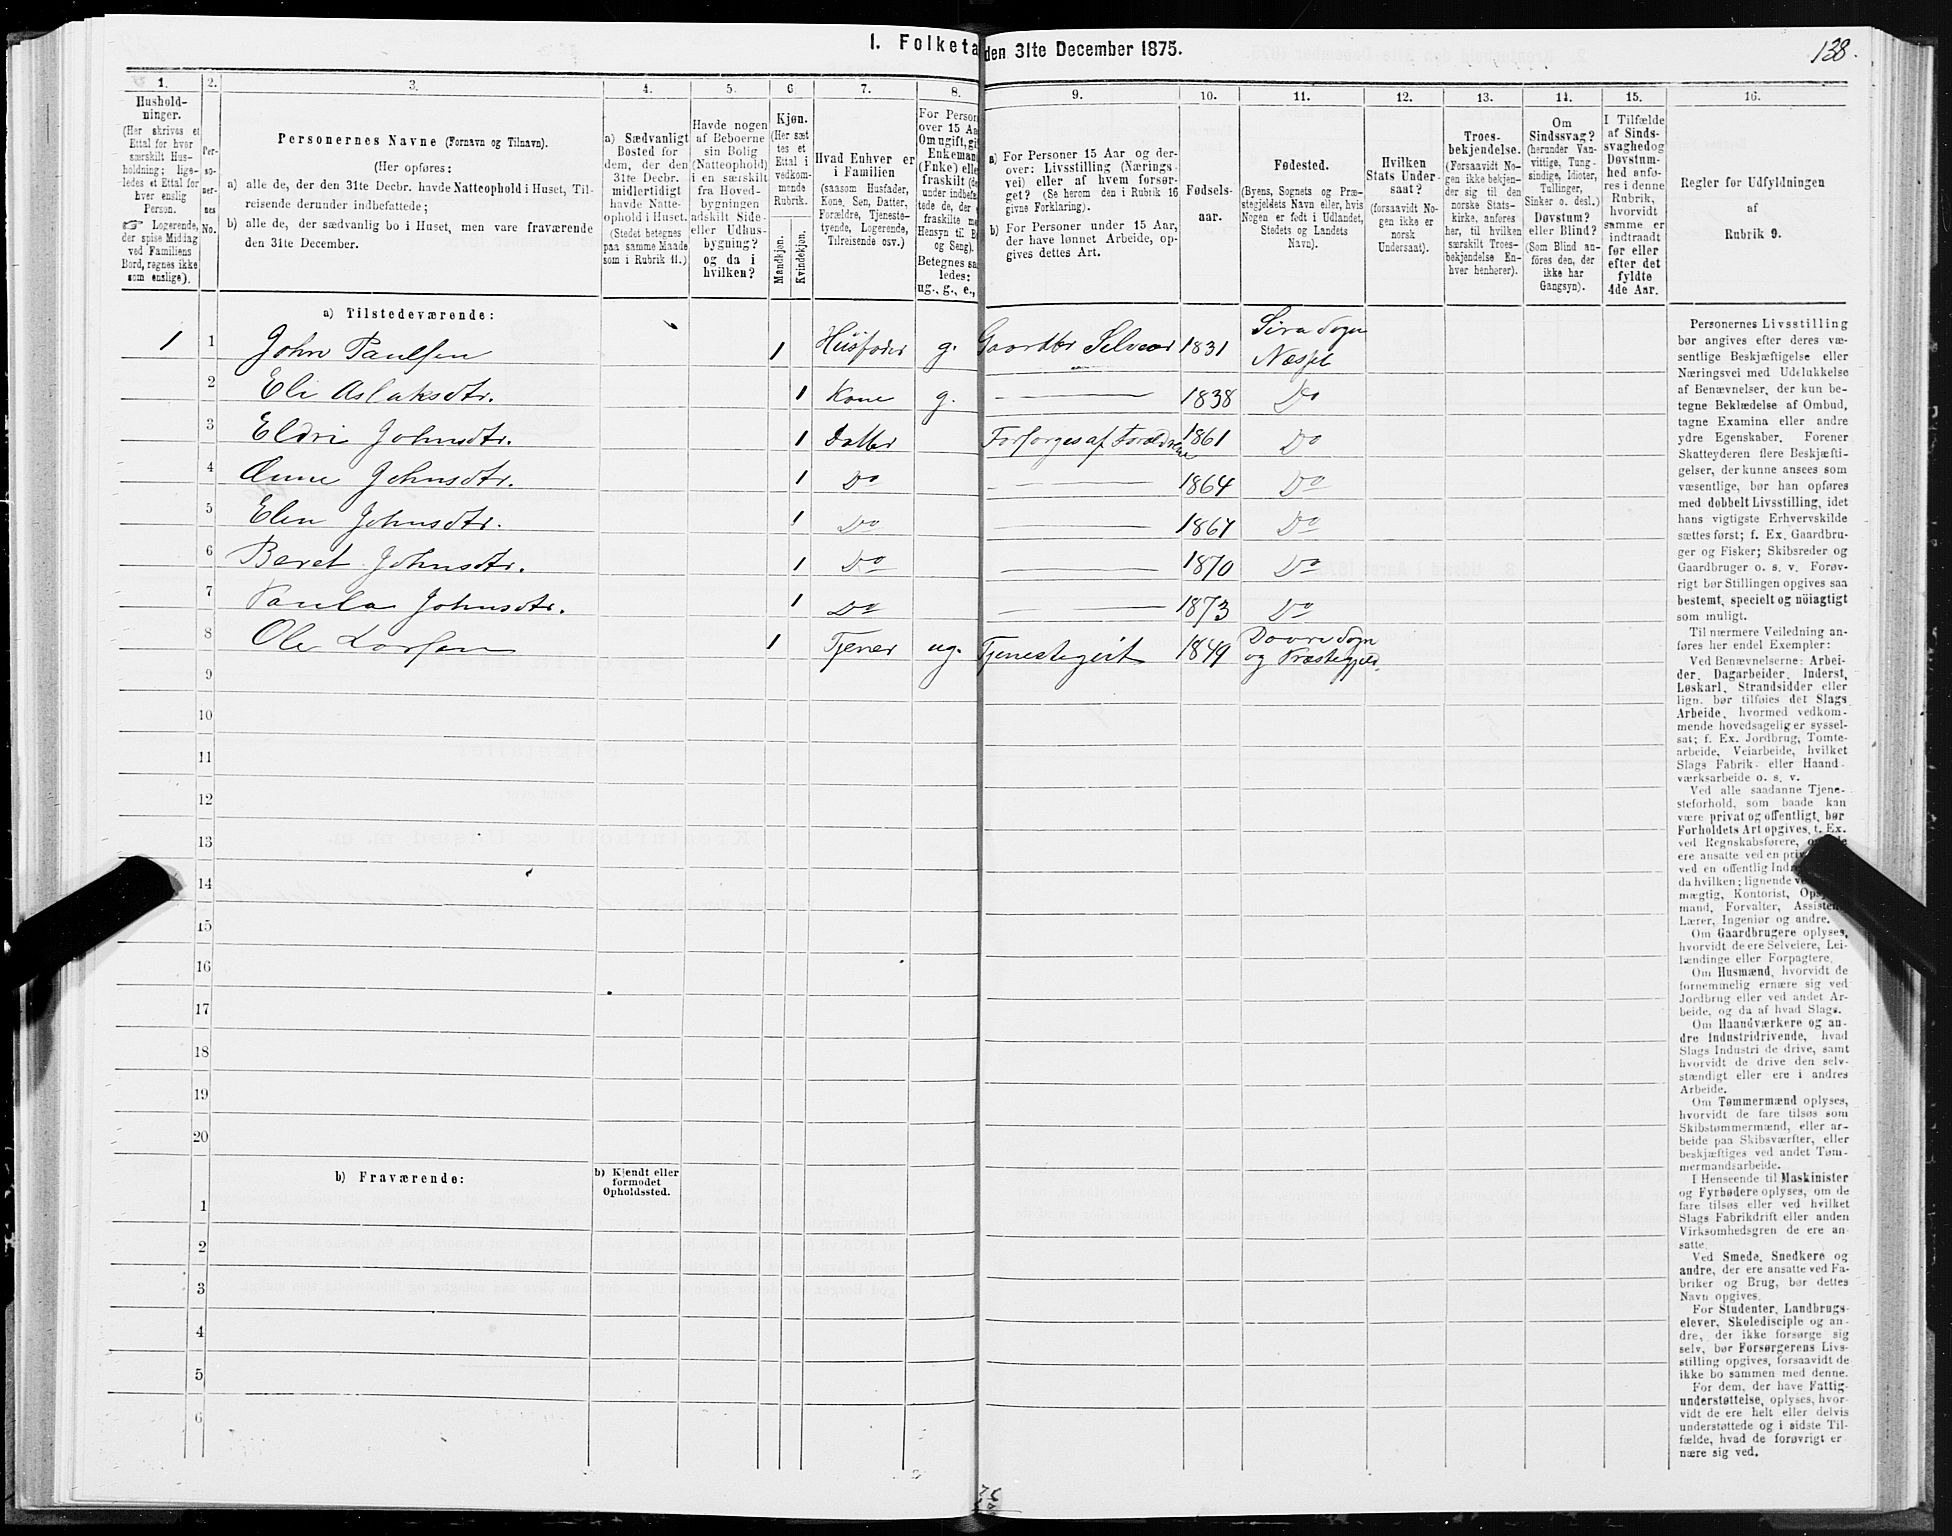 I. Folketa den 31te December 1875.
138.
1. 2. 3. 4. 5. 6 7. 8. 9. 10. 11. 12. 13. 14. 15. 16.
Hushold-
ninger.
(Her skrives et
Ettal for hver
særskilt Hus-
holdning; lige-
ledes et Ettal for
hver enslig
Person.
☞ Logerende,
der spise Middag
ved Familiens
Bord, regnes ikke
som enslige).
Per-
so-
ner-
nes
No.
Personernes Navne (Fornavn og Tilnavn).
(Her opføres:
a) alle de, der den 31te Decbr. havde Natteophold i Huset, Til-
reisende derunder indbefattede;
b) alle de, der sædvanlig bo i Huset, men vare fraværende
den 31te December.
a) Sædvanligt
Bosted for
dem, der den
31te Decbr.
midlertidigt
havde Natte-
ophold i Huset.
(Stedet betegnes
paa samme Maade
som i Rubrik 11.)
Havde nogen
af Beboerne
sin Bolig
(Natteophold)
i en særskilt
fra Hoved-
bygningen
adskilt Side-
eller Udhus-
bygning?
og da i
hvilken?
Kjøn.
(Her sæt
tes et
Ettal i
vedkom-
mende
Rubrik.
Mandkjøn.
Kvindekjøn.
Hvad Enhver er
i Familien
(saasom Husfader,
Kone, Søn, Datter,
Forældre, Tjeneste-
tyende, Logerende,
Tilreisende osv.)
For Person
over 15 Aa
Om ugift, gi
Enkeman
(Enke) elle
fraskilt (de
under indbefat-
tede de, der
fraskilte me
Hensyn til B
og Seng).
Betegnes saa
ledes:
ug., g., e.,
a) For Personer 15 Aar og der-
over: Livsstilling (Nærings-
vei) eller af hvem forsør-
get? (Se herom den i Rubrik 16
givne Forklaring).
b) For Personer under 15 Aar,
der have lønnet Arbeide, op-
gives dettes Art.
Fødsels-
aar.
Fødested.
(Byens, Sognets og Præ-
stegjeldets Navn eller, hvis
Nogen er født i Udlandet,
Stedets og Landets
Navn).
Hvilken
Stats Under-
saat?
(forsaavidt No-
gen ikke er
norsk
Undersaat).
Troes-
bekjendelse.
(Forsaavidt No-
gen ikke bekjen-
der sig til den
norske Stats-
kirke, anføres
her, til hvilken
særskilt Troes-
bekjendelse En-
hver henhører).
Om
Sindssvag?
(herunder Van-
vittige, Tung-
sindige, Idioter,
Tullinger,
Sinker o. desl.)
Døvstum?
eller Blind?
(Som Blind an-
føres den, der
ikke har
Gangsyn).
I Tilfælde
af Sinds-
svaghed og
Døvstum-
hed anfø-
res i denne
Rubrik,
hvorvidt
samme er
indtraadt
før eller
efter det
fyldte
4de Aar.
Regler for Udfyldningen
af
Rubrik 9.
a) Tilstedeværende:
1 1 John Paulsen 1 Husfader g. Gaardbr Selveier 1831 Sira Sogn
Næsset
2 Eli Aslaksdtr. 1 Kone g. — 1838 Do
3 Eldri Johnsdtr. 1 Datter Forsørges af Forældrene 1861 Do
4 Anne Johnsdtr. 1 Do — 1864 Do
5 Elen Johnsdtr. 1 Do — 1867 Do
6 Beret Johnsdtr. 1 Do — 1870 Do
7 Paula Johnsdtr. 1 Do — 1873 Do
8 Ole Larsen 1 Tjener ug. Tjenestegut 1849 Dovre Sogn
og Præstegjeld.
9
10
11
12
13
14
15
16
17
18
19
20
b) Fraværende:
b) Kjendt eller
formodet
Opholdssted.
1
2
3
4
5
6
Personernes Livsstilling
bør angives efter deres væ-
sentlige Beskjæftigelse eller
Næringsvei med Udelukkelse
af Benævnelser, der kun be-
tegne Beklædelse af Ombud,
tagne Examina eller andre
ydre Egenskaber. Forener
Skatteyderen flere Beskjæfti-
gelser, der kunne ansees som
væsentlige, bør han opføres
med dobbelt Livsstilling, idet
hans vigtigste Erhvervskilde
sættes først; f. Ex. Gaardbru-
ger og Fisker; Skibsreder og
Gaardbruger o. s. v. Forøv-
rigt bør Stillingen opgives saa
bestemt, specielt og nöiagtigt
som muligt.
Til nærmere Veiledning an-
føres her endel Exempler:
Ved Benævnelserne: Arbei-
der, Dagarbeider, Inderst,
Løskarl, Strandsidder eller
lign. bør tilføies det Slags
Arbeide, hvormed vedkom-
mende hovedsagelig er syssel-
sat; f. Ex. Jordbrug, Tomte-
arbeide, Veiarbeide, hvilket
Slags Fabrik- eller Haand-
værksarbeide o. s. v.
Ved alle saadanne Tjene-
steforhold, som baade kan
være privat og offentligt, bør
Forholdets Art opgives, t. Ex.
ved Regnskabsførere,
ere ansatte ved en
ved en offentlig
da hvilken; lignende
mægtig, Kontorist,
mand, Forvalter,
Lærer, Ingeniør og andre.
Om Gaardbrugere oplyses,
hvorvidt de ere Selveiere, Lei-
lændinge eller Forpagtere.
Om Husmænd, hvorvidt de
fornemmelig ernære sig ved
Jordbrug eller ved andet Ar-
beide, og da af hvad Slags.
Om Haandværkere og an-
dre Industridrivende, hvad
Slags Industri de drive, samt
hvorvidt de drive den selv-
stændigt eller ere i andres
Arbeide.
Om Tømmermænd oplyses,
hvorvidt de fare tilsøs som
Skibstømmermænd, eller ar-
beide paa Skibsværfter, eller
beskjæftiges ved andet Tøm-
mermandsarbeide.
I Henseende til Maskinister
og Fyrbødere oplyses, om de
fare tilsøs eller ved hvilket
Slags Fabrikdrift eller anden
Virksomhedsgren de ere an-
satte.
Ved Smede, Snedkere og
andre, der ere ansatte ved Fa-
briker og Brug, bør dettes
Navn opgives.
For Studenter, Landbrugs-
elever, Skoledisciple og an-
dre, der ikke forsørge sig
selv, bør Forsørgerens Livs-
stilling opgives, forsaavidt de
ikke bo sammen med denne.
For dem, der have Fattig-
understøttelse, oplyses, hvor-
vidt de ere helt eller delvis
understøttede og i sidste Til-
fælde, hvad de forøvrigt er-
nære sig ved.